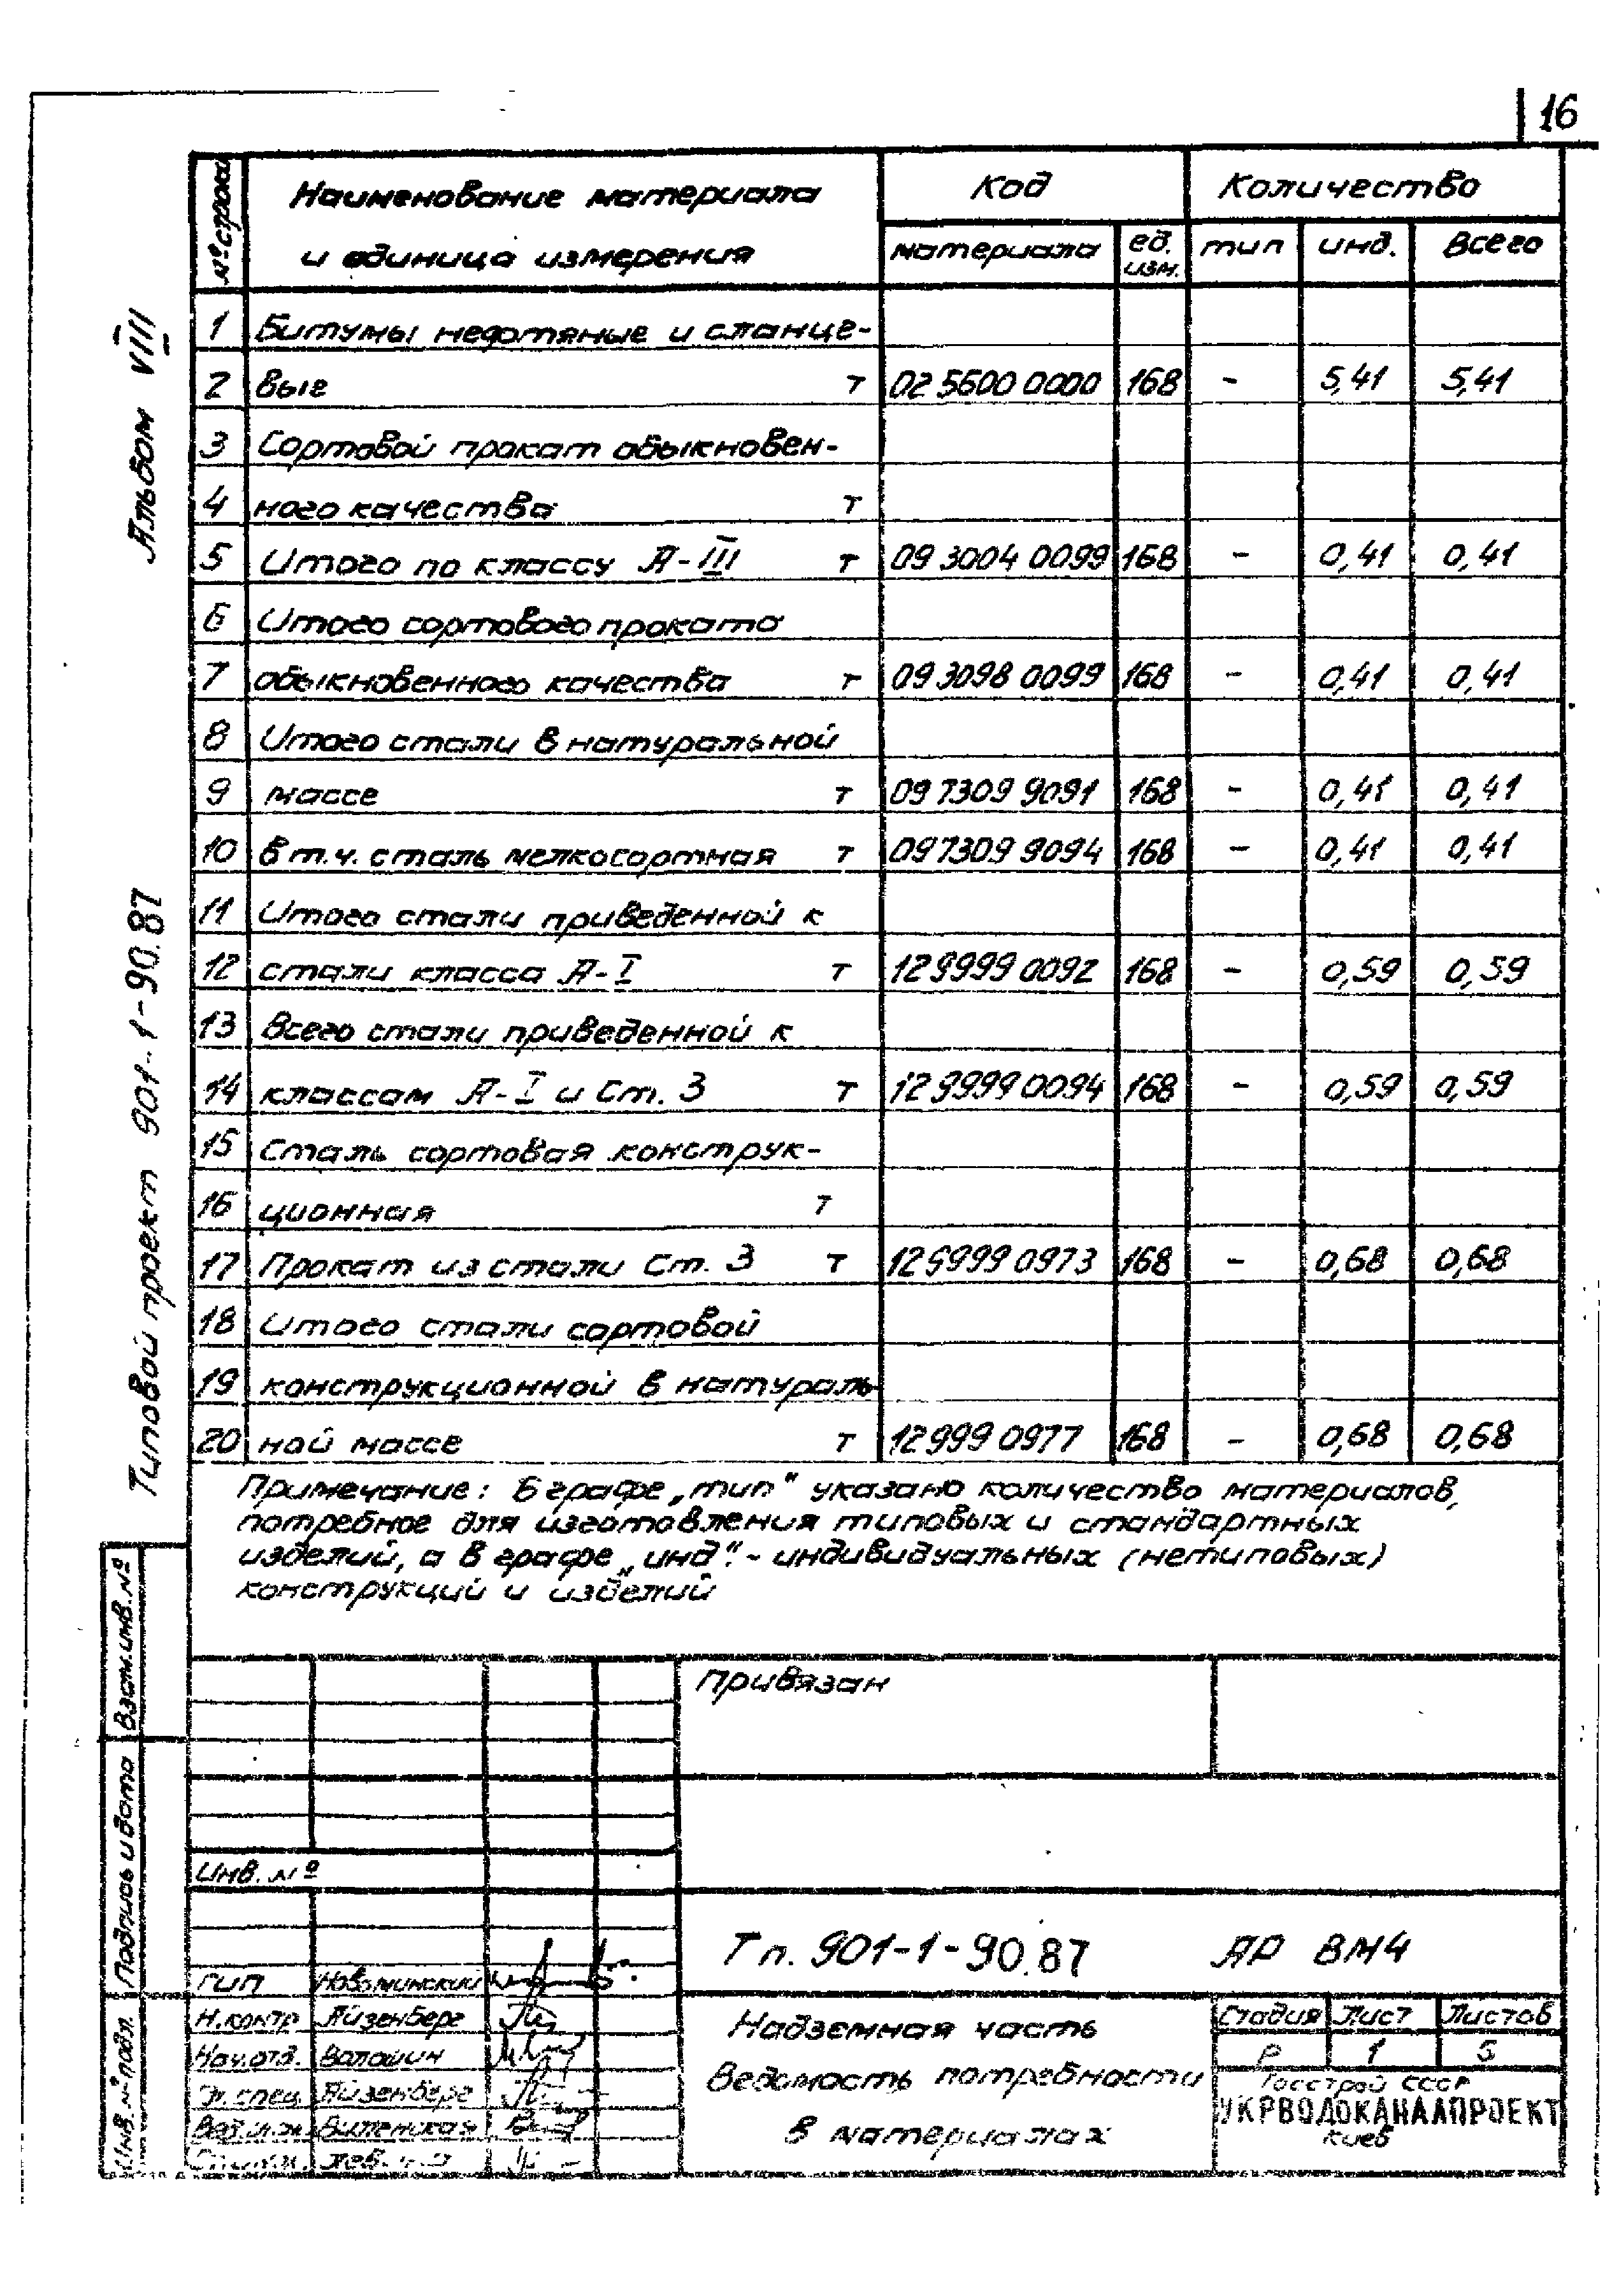 16
Альбом VIII
Типовой проект 901-1-90.87
№ строки Наименование материала и единица измерения Код Количество
материала ед. изм. тип инд. Всего
1 Битумы нефтяные и сланце-
2 вые т 02 5600 0000 168 - 5,41 5,41
3 Сортовой прокат обыкновен-
4 ного качества т
5 Итого по классу А-III т 09 3004 0099 168 - 0,41 0,41
6 Итого сортового проката
7 обыкновенного качества т 09 3098 0099 168 - 0,41 0,41
8 Итого стали в натуральной
9 массе т 09 7309 9091 168 - 0,41 0,41
10 в т.ч. сталь мелкосортная т 09 7309 9094 168 - 0,41 0,41
11 Итого стали приведенной к
12 стали класса А-I т 12 9999 0092 168 - 0,59 0,59
13 Всего стали приведенной к
14 классам А-I и Ст. 3 т 12 9999 0094 168 - 0,59 0,59
15 Сталь сортовая конструк-
16 ционная т
17 Прокат из стали Ст. 3 т 12 9999 0973 168 - 0,68 0,68
18 Итого стали сортовой
19 конструкционной в натураль-
20 ной массе т 12 999 0977 168 - 0,68 0,68
Примечание: В графе „тип" указано количество материалов,
потребное для изготовления типовых и стандартных
изделий, а в графе „инд." - индивидуальных (нетиповых)
конструкций и изделий
Привязан
Инв. №
Взам. инв. №
Подпись и дата
Инв. № подл.
Тп. 901-1-90.87 АР ВМ4
ГИП Новоминский
Н.контр Айзенберг
Нач.отд. Волошин
Гл. спец. Айзенберг
Вед. инж Виленская
Надземная часть
Ведомость потребности
в материалах
Стадия Лист Листов
Р 1 5
Госстрой СССР
УКРВОДОКАНАЛПРОЕКТ
Киев